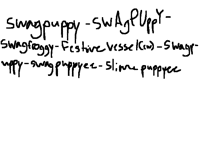 swagpuppy - SwAgPUppY -
swagfroggy - Festive vessel(cw) - Swagp
uppy - swagpuppyee - Slime puppyee